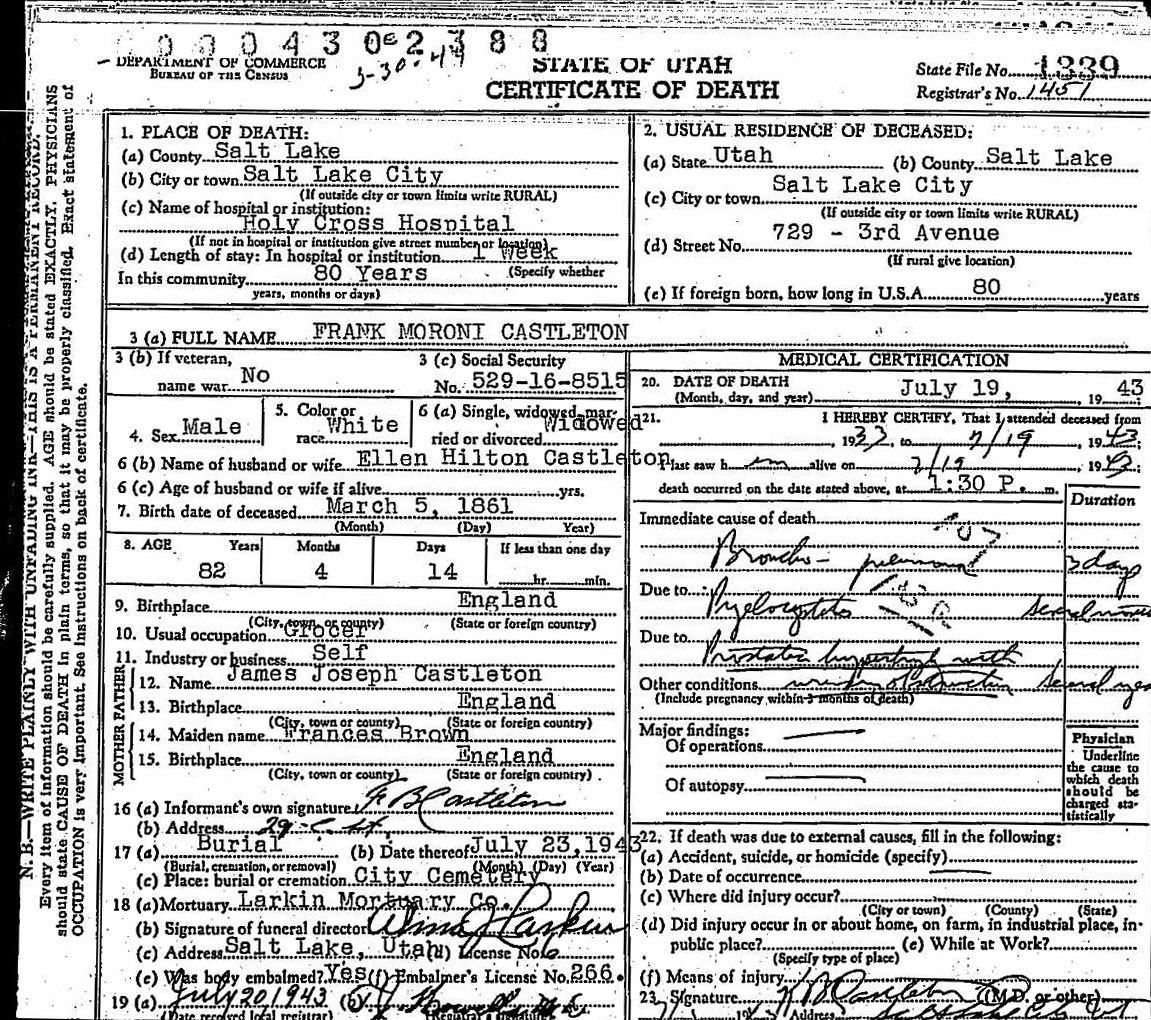 0 0 0 4 3 0 2 3 8 8
DEPARTMENT OF COMMERCE
BUREAU OF THE CENSUS
3-30-44
STATE OF UTAH
CERTIFICATE OF DEATH
State File No. 1339
Registrar's No. 1451
N. B.—WRITE PLAINLY WITH UNFADING INK—THIS IS A PERMANENT RECORD.
Every item of information should be carefully supplied. AGE should be stated EXACTLY. PHYSICIANS
should state CAUSE OF DEATH in plain terms, so that it may be properly classified. Exact statement of
OCCUPATION is very important. See instructions on back of certificate.
1. PLACE OF DEATH:
(a) County Salt Lake
(b) City or town Salt Lake City
(If outside city or town limits write RURAL)
(c) Name of hospital or institution:
Holy Cross Hospital
(If not in hospital or institution give street number or location)
(d) Length of stay: In hospital or institution 1 Week
In this community 80 Years (Specify whether
years, months or days)
2. USUAL RESIDENCE OF DECEASED:
(a) State Utah (b) County Salt Lake
(c) City or town Salt Lake City
(If outside city or town limits write RURAL)
(d) Street No. 729 - 3rd Avenue
(If rural give location)
(e) If foreign born, how long in U.S.A. 80 years
3 (a) FULL NAME FRANK MORONI CASTLETON
3 (b) If veteran,
name war No
3 (c) Social Security
No. 529-16-8515
4. Sex Male
5. Color or
race White
6 (a) Single, widowed, mar-
ried or divorced Widowed
6 (b) Name of husband or wife Ellen Hilton Castleton
6 (c) Age of husband or wife if alive yrs.
7. Birth date of deceased March 5, 1861
(Month) (Day) Year)
8. AGE Years Months Days If less than one day
82 4 14 hr. min.
9. Birthplace England
(City, town, or county) (State or foreign country)
10. Usual occupation Grocer
11. Industry or business Self
FATHER
12. Name James Joseph Castleton
13. Birthplace England
(City, town or county) (State or foreign country)
MOTHER
14. Maiden name Frances Brown
15. Birthplace England
(City, town or county) (State or foreign country)
16 (a) Informant's own signature F B Castleton
(b) Address 29 - C St.
17 (a) Burial (b) Date thereof July 23,1943
(Burial, cremation, or removal) (Month) (Day) (Year)
(c) Place: burial or cremation City Cemetery
18 (a) Mortuary Larkin Mortuary Co.
(b) Signature of funeral director Larkin
(c) Address Salt Lake, Utah (d) License No. 6
(e) Was body embalmed? Yes (f) Embalmer's License No. 266.
19 (a) July 20 1943 (b)
(Date received local registrar) (Registrar's signature)
MEDICAL CERTIFICATION
20. DATE OF DEATH
(Month, day, and year) July 19, 19 43
21. I HEREBY CERTIFY, That I attended deceased from
, 1933, to 7/19, 1943;
I last saw h im alive on 7/19, 1943;
death occurred on the date stated above, at 1:30 P. m.
Duration
Immediate cause of death
107
Broncho- pneumonia 3 days
Due to Pyelocystitis several
Due to
Prostatic hypertrophy with
Other conditions urinary obstruction Several yrs
(Include pregnancy within 3 months of death)
Major findings:
Of operations
Of autopsy
Physician
Underline
the cause to
which death
should be
charged sta-
tistically
22. If death was due to external causes, fill in the following:
(a) Accident, suicide, or homicide (specify)
(b) Date of occurrence
(c) Where did injury occur?
(City or town) (County) (State)
(d) Did injury occur in or about home, on farm, in industrial place, in-
public place? (e) While at Work?
(Specify type of place)
(f) Means of injury
23. Signature Castleton (M.D. or other)
Address